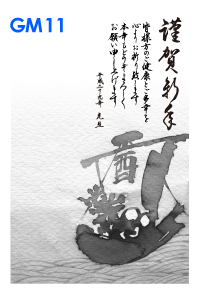 GM11
謹賀新年
皆様方のご健康とご多幸を
心よりお祈り致します
本年もどうぞよろしく
お願い申し上げます
平成二十九年 元旦
酉